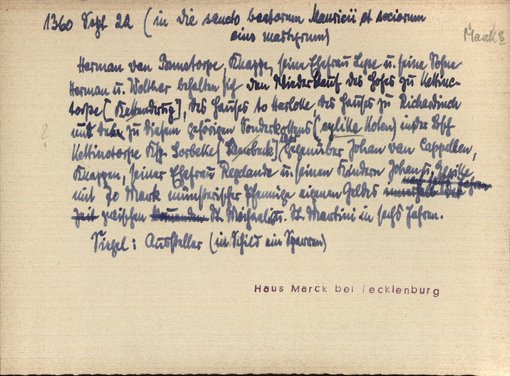 1360 Sept 22 (in die sancto beatorum Mauricii et sociorum
eius martyrum)
Mark 8
Herman van Bonnetorpe, Knappe, seine Ehefrau Lyse u. seine Söhne
Herman u. Wolther behalten sich den Wiederkauf des Hofes zu Kettinc-
torpe (Kettendrup), des Hauses to Herlote, des Hauses zu Richardinch
und der zu diesem gehörigen Sonderkotten (eylike Koten) in der Bschft
Kettinctorpe Ksp. Lorbeke (Leerbeck) gegenüber Johan van Cappellen,
Knappen, seiner Ehefrau Regelande u. seinen Kindern Johan u.
mit 70 Mark münsterischer Pfennige eigenen Geldes
zwischen St. Michaelis u. St. Martini in sechs Jahren.
Siegel: Aussteller (im Schild ein Sparren)
Haus Marck bei Tecklenburg